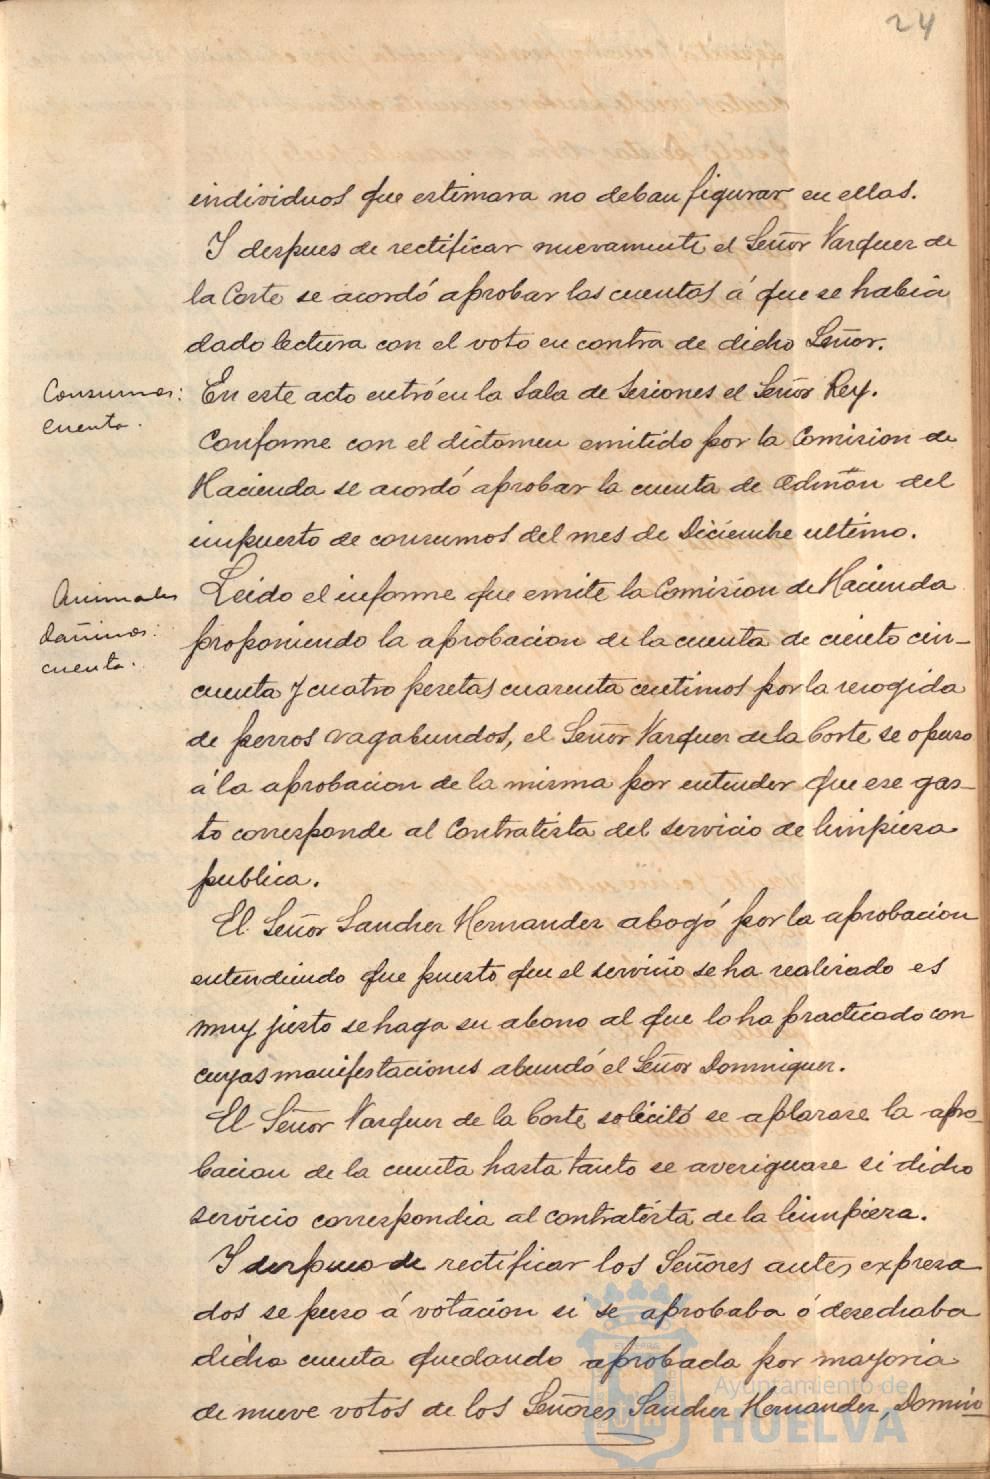 24
individuos que estimara no deban figurar en ellas.
Y despues de rectificar nuevamente el Señor Vazquez de
la Corte se acordó aprobar las cuentas á que se habia
dado lectura con el voto en contra de dicho Señor.
Consumos:
cuenta.
En este acto entró en la Sala de Sesiones el Señor Rey.
Conforme con el dictamen emitido por la Comision de
Hacienda se acordó aprobar la cuenta de Admõn del
impuesto de consumos del mes de Diciembre ultimo.
Animales
dañinos:
cuenta.
Leido el informe que emite la Comision de Hacienda
proponiendo la aprobacion de la cuenta de ciento cin-
cuenta y cuatro pesetas cuarenta centimos por la recogida
de perros vagabundos, el Señor Vazquez de la Corte se opuso
á la aprobacion de la misma por entender que ese gas-
to corresponde al Contratista del servicio de limpieza
publica.
El Señor Sanchez Hernandez abogó por la aprobacion
entendiendo que puesto que el servicio se ha realizado es
muy justo se haga su abono al que lo ha practicado con
cuyas manifestaciones abundó el Señor Dominguez.
El Señor Vazquez de la Corte solicitó se aplazase la apro-
bacion de la cuenta hasta tanto se averiguase si dicho
servicio correspondia al contratista de la limpieza.
Y despues de rectificar los Señores antes expresa
dos se puso á votacion si se aprobaba ó desechaba
dicha cuenta quedando aprobada por mayoria
de nueve votos de los Señores Sanchez Hernandez, Domin-
Ayuntamiento de
HUELVA